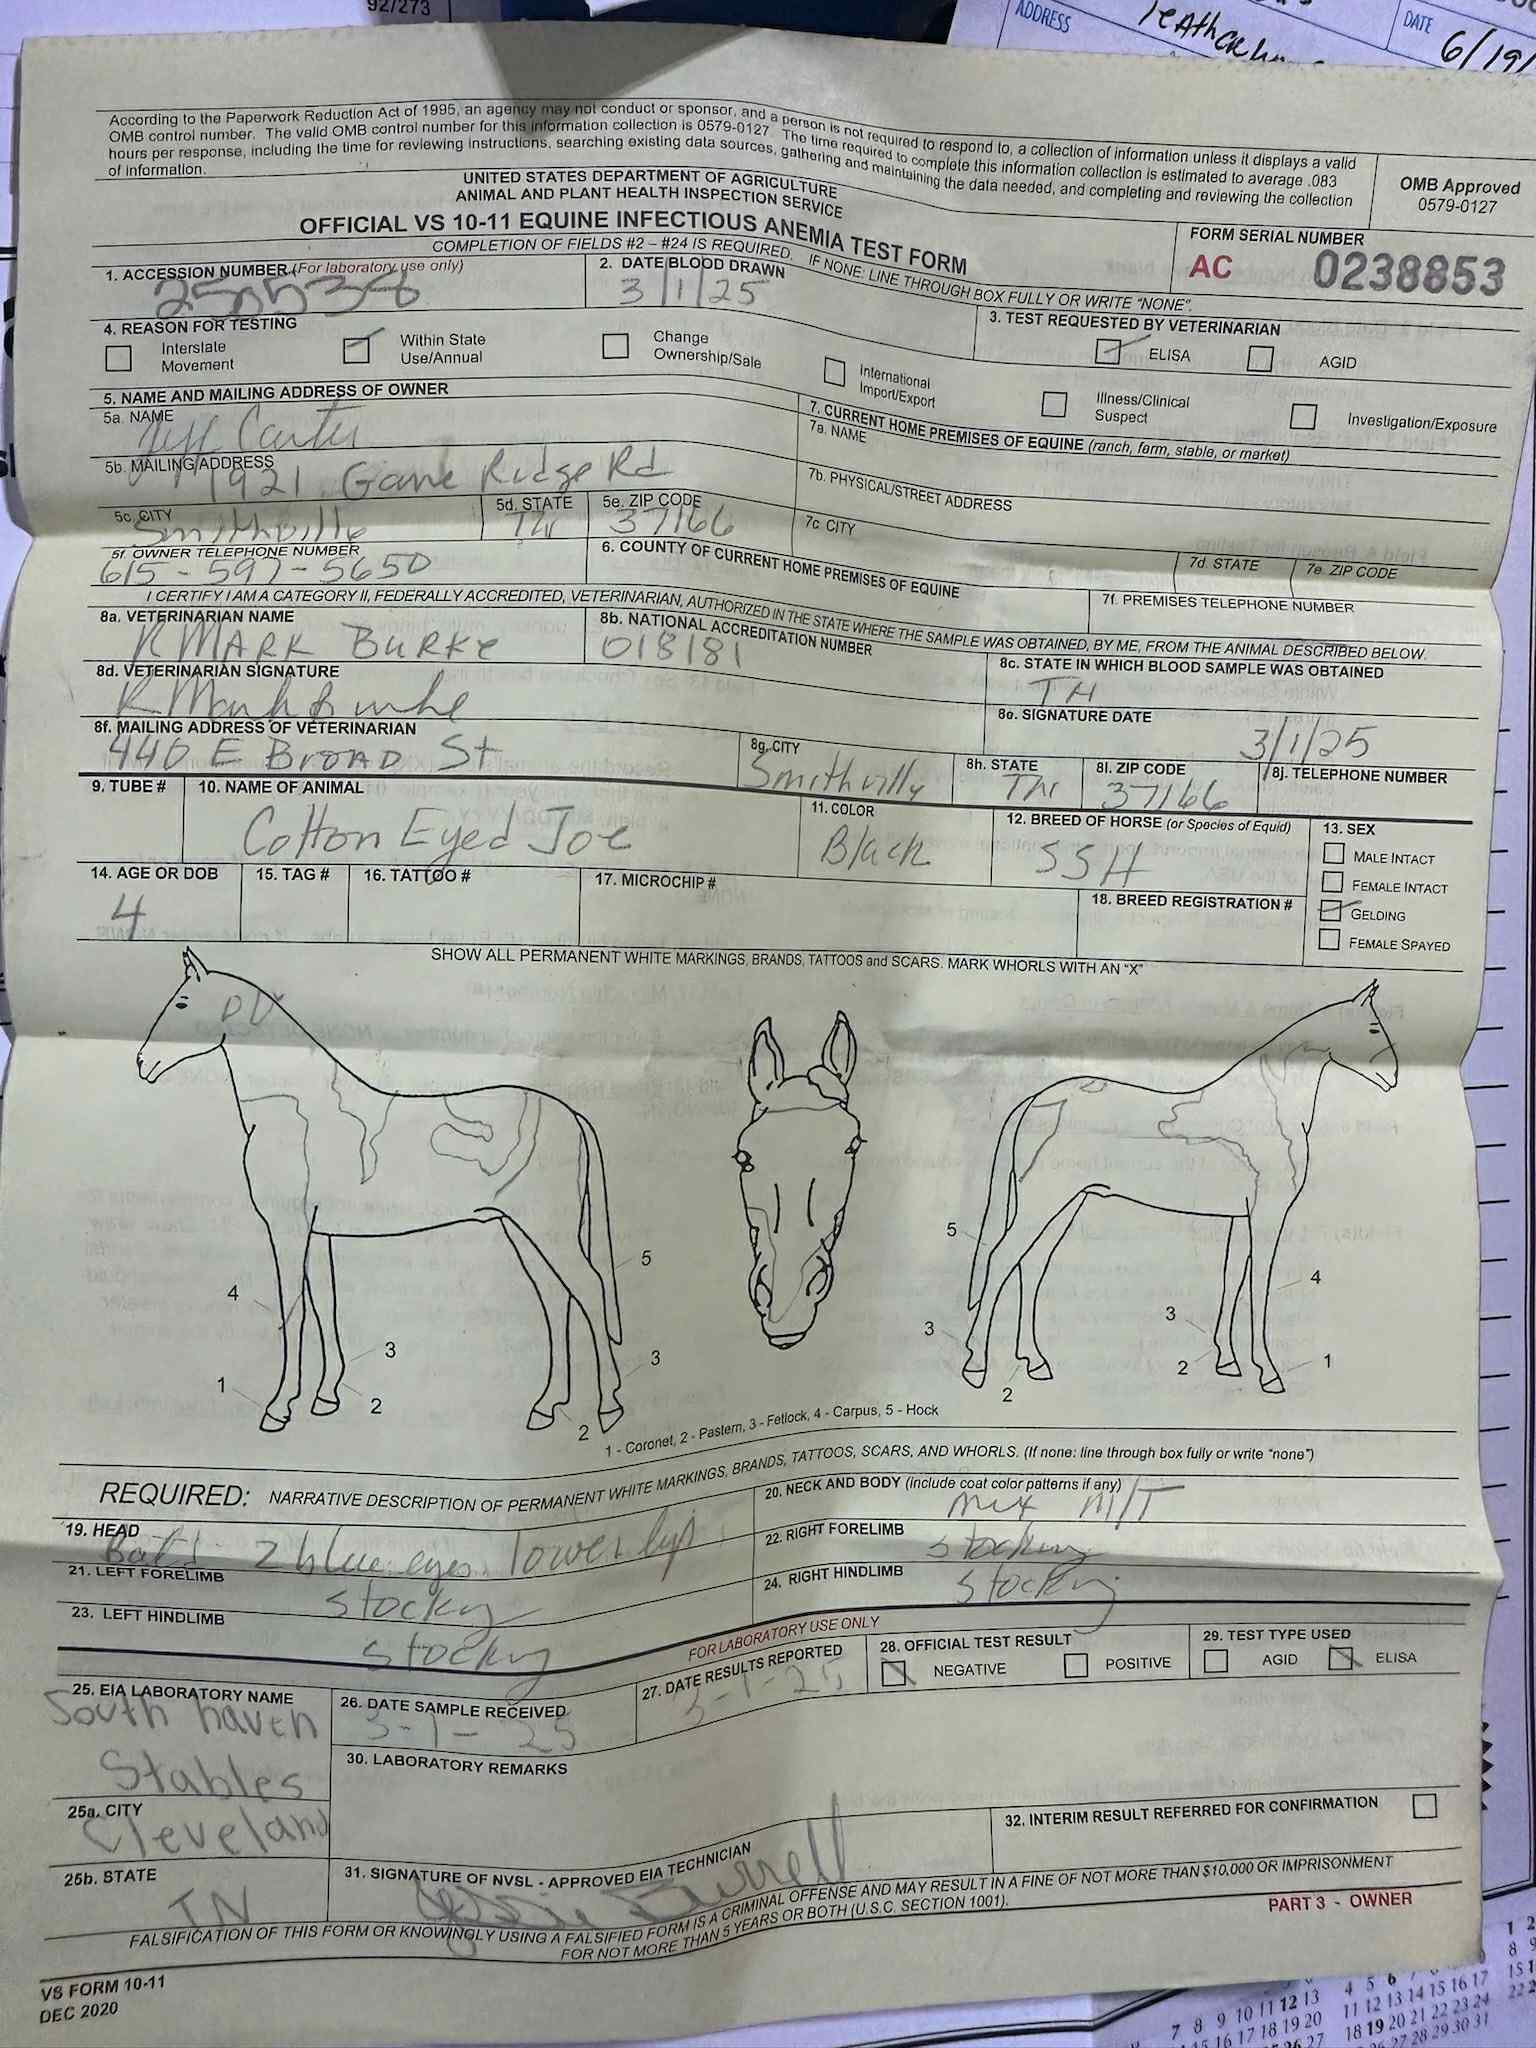 92/273
ADDRESS
DATE
6/19/
According to the Paperwork Reduction Act of 1995, an agency may not conduct or sponsor, and a person is not required to respond to, a collection of information unless it displays a valid
OMB control number. The valid OMB control number for this information collection is 0579-0127. The time required to complete this information collection is estimated to average .083
hours per response, including the time for reviewing instructions, searching existing data sources, gathering and maintaining the data needed, and completing and reviewing the collection
of information.
OMB Approved
0579-0127
UNITED STATES DEPARTMENT OF AGRICULTURE
ANIMAL AND PLANT HEALTH INSPECTION SERVICE
OFFICIAL VS 10-11 EQUINE INFECTIOUS ANEMIA TEST FORM
COMPLETION OF FIELDS #2 – #24 IS REQUIRED. IF NONE: LINE THROUGH BOX FULLY OR WRITE "NONE".
FORM SERIAL NUMBER
AC 0238853
1. ACCESSION NUMBER (For laboratory use only)
250538
2. DATE BLOOD DRAWN
3/1/25
3. TEST REQUESTED BY VETERINARIAN
ELISA
AGID
4. REASON FOR TESTING
Interstate Movement
Within State Use/Annual
Change Ownership/Sale
International Import/Export
Illness/Clinical Suspect
Investigation/Exposure
5. NAME AND MAILING ADDRESS OF OWNER
5a. NAME
Jeff Carter
5b. MAILING ADDRESS
1921 Game Ridge Rd
5c. CITY
Smithville
5d. STATE
TN
5e. ZIP CODE
37166
5f. OWNER TELEPHONE NUMBER
615-597-5650
6. COUNTY OF CURRENT HOME PREMISES OF EQUINE
7. CURRENT HOME PREMISES OF EQUINE (ranch, farm, stable, or market)
7a. NAME
7b. PHYSICAL/STREET ADDRESS
7c. CITY
7d. STATE
7e. ZIP CODE
7f. PREMISES TELEPHONE NUMBER
I CERTIFY I AM A CATEGORY II, FEDERALLY ACCREDITED, VETERINARIAN, AUTHORIZED IN THE STATE WHERE THE SAMPLE WAS OBTAINED, BY ME, FROM THE ANIMAL DESCRIBED BELOW.
8a. VETERINARIAN NAME
R MARK BURKE
8b. NATIONAL ACCREDITATION NUMBER
018181
8c. STATE IN WHICH BLOOD SAMPLE WAS OBTAINED
TN
8d. VETERINARIAN SIGNATURE
R Mark Burke
8e. SIGNATURE DATE
3/1/25
8f. MAILING ADDRESS OF VETERINARIAN
440 E BROAD St
8g. CITY
Smithville
8h. STATE
TN
8i. ZIP CODE
37166
8j. TELEPHONE NUMBER
9. TUBE #
10. NAME OF ANIMAL
Cotton Eyed Joe
11. COLOR
Black
12. BREED OF HORSE (or Species of Equid)
SSH
13. SEX
MALE INTACT
FEMALE INTACT
GELDING
FEMALE SPAYED
14. AGE OR DOB
4
15. TAG #
16. TATTOO #
17. MICROCHIP #
18. BREED REGISTRATION #
SHOW ALL PERMANENT WHITE MARKINGS, BRANDS, TATTOOS and SCARS. MARK WHORLS WITH AN "X"
5
4
3
3
1
2
2
5
4
3
3
2
1
2
1 - Coronet, 2 - Pastern, 3 - Fetlock, 4 - Carpus, 5 - Hock
REQUIRED: NARRATIVE DESCRIPTION OF PERMANENT WHITE MARKINGS, BRANDS, TATTOOS, SCARS, AND WHORLS. (If none: line through box fully or write "none")
19. HEAD
Bald 2 blue eyes lower lip
20. NECK AND BODY (include coat color patterns if any)
mix M/T
21. LEFT FORELIMB
stocky
22. RIGHT FORELIMB
stocking
23. LEFT HINDLIMB
stocky
24. RIGHT HINDLIMB
stocking
FOR LABORATORY USE ONLY
25. EIA LABORATORY NAME
South haven
Stables
25a. CITY
Cleveland
25b. STATE
TN
26. DATE SAMPLE RECEIVED
3-1-25
27. DATE RESULTS REPORTED
3-1-25
28. OFFICIAL TEST RESULT
NEGATIVE
POSITIVE
29. TEST TYPE USED
AGID
ELISA
30. LABORATORY REMARKS
31. SIGNATURE OF NVSL - APPROVED EIA TECHNICIAN
32. INTERIM RESULT REFERRED FOR CONFIRMATION
FALSIFICATION OF THIS FORM OR KNOWINGLY USING A FALSIFIED FORM IS A CRIMINAL OFFENSE AND MAY RESULT IN A FINE OF NOT MORE THAN $10,000 OR IMPRISONMENT
FOR NOT MORE THAN 5 YEARS OR BOTH (U.S.C. SECTION 1001).
PART 3 - OWNER
VS FORM 10-11
DEC 2020